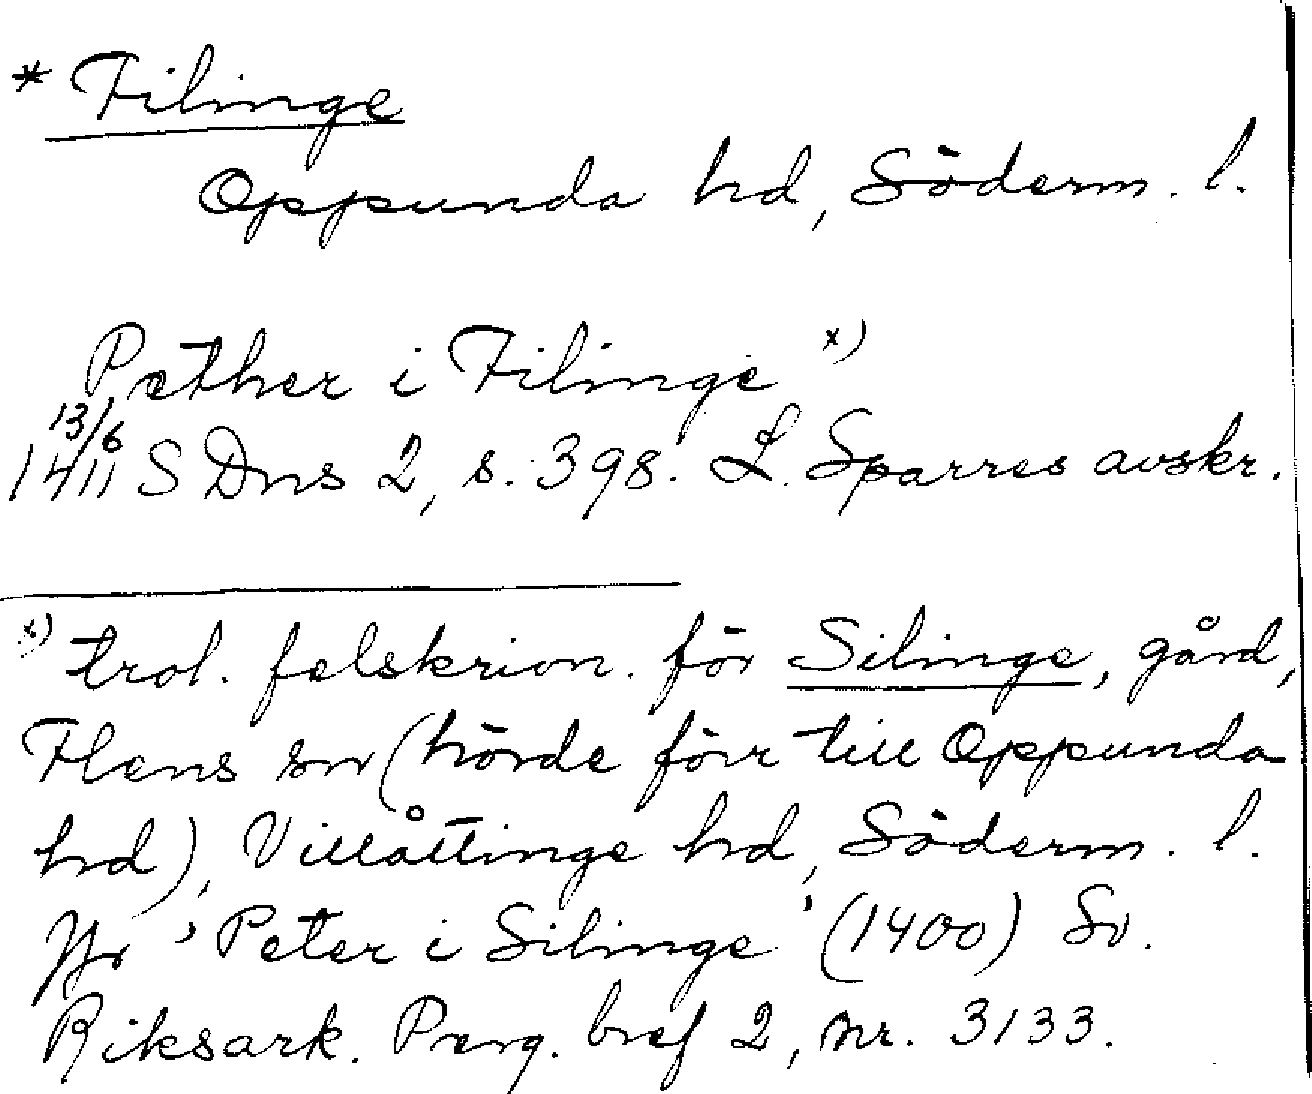 * Filinge
Oppunda hd, Söderm. l.
Pæther i Filinge x)
13/6
1411 SDns 2, s. 398. L. Sparres avskr.
x) trol. felskrivn. för Silinge, gård,
Flens sn (hörde förr till Oppunda
hd), Villåttinge hd, Söderm. l.
Jfr 'Peter i Silinge' (1400) Sv.
Riksark. Perg. bref 2, nr. 3133.